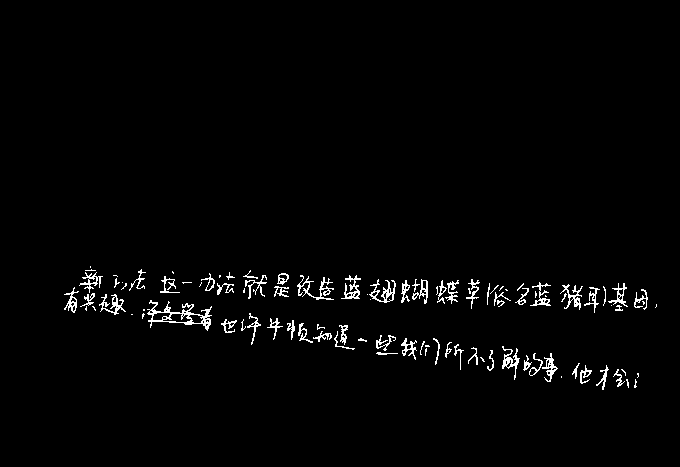 新办法这一办法就是改造蓝翅蝴蝶草(俗名蓝猪耳)基因,
有兴趣. 也许牛顿知道一些我们所不了解的事.他才会